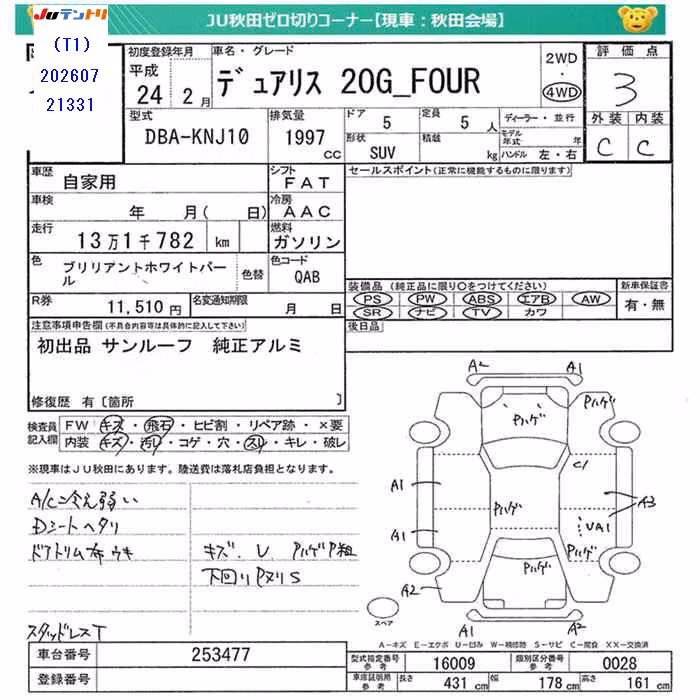 JUテントリ
JU秋田ゼロ切りコーナー【現車：秋田会場】
(T1)
202607
21331
初度登録年月
平成
24 2月
車名・グレード
デュアリス 20G_FOUR
2WD
・
4WD
評価点
3
外装 内装
C C
型式
DBA-KNJ10
排気量
1997
cc
ドア
5
定員
5 人
形状
SUV
積載
kg
ディーラー・並行
モデル年式 年
ハンドル 左・右
車歴
自家用
シフト
FAT
セールスポイント(正常に機能するものに限ります)
車検
年 月( 日)
冷房
AAC
走行
13万1千782 km
燃料
ガソリン
色
ブリリアントホワイトパール
色替
色コード
QAB
装備品(純正品に限り○をつけてください)
PS PW ABS エアB AW
SR ナビ TV カワ
新車保証書
有・無
R券
11,510円
名変通知期限
月 日
後日品
注意事項申告欄(不具合内容等は具体的に記入して下さい)
初出品 サンルーフ 純正アルミ
修復歴 有〔箇所 〕
検査員記入欄
FW キズ・飛石・ヒビ割・リペア跡・×要
内装 キズ・汚レ・コゲ・穴・スレ・キレ・破レ
※現車はJU秋田にあります。陸送費は落札店負担となります。
A/C冷え弱い
Dシートヘタリ
ドアトリム布ウキ
キズ・U Pハゲ P粗
下回りPヌリS
スタッドレスT
A2 A1
Pハゲ
Pハゲ
C1
A1
Pハゲ
A3
A1
UA1
Pハゲ
Pハゲ
A2
スペア
A1 A2
A－キズ E－エクボ U－凹み W－補修跡 S－サビ C－腐食 XX－交換済
車台番号
253477
登録番号
型式指定番号
参考
16009
類別区分番号
参考
0028
車庫証明用
参考
長さ 431 cm
幅 178 cm
高さ 161 cm